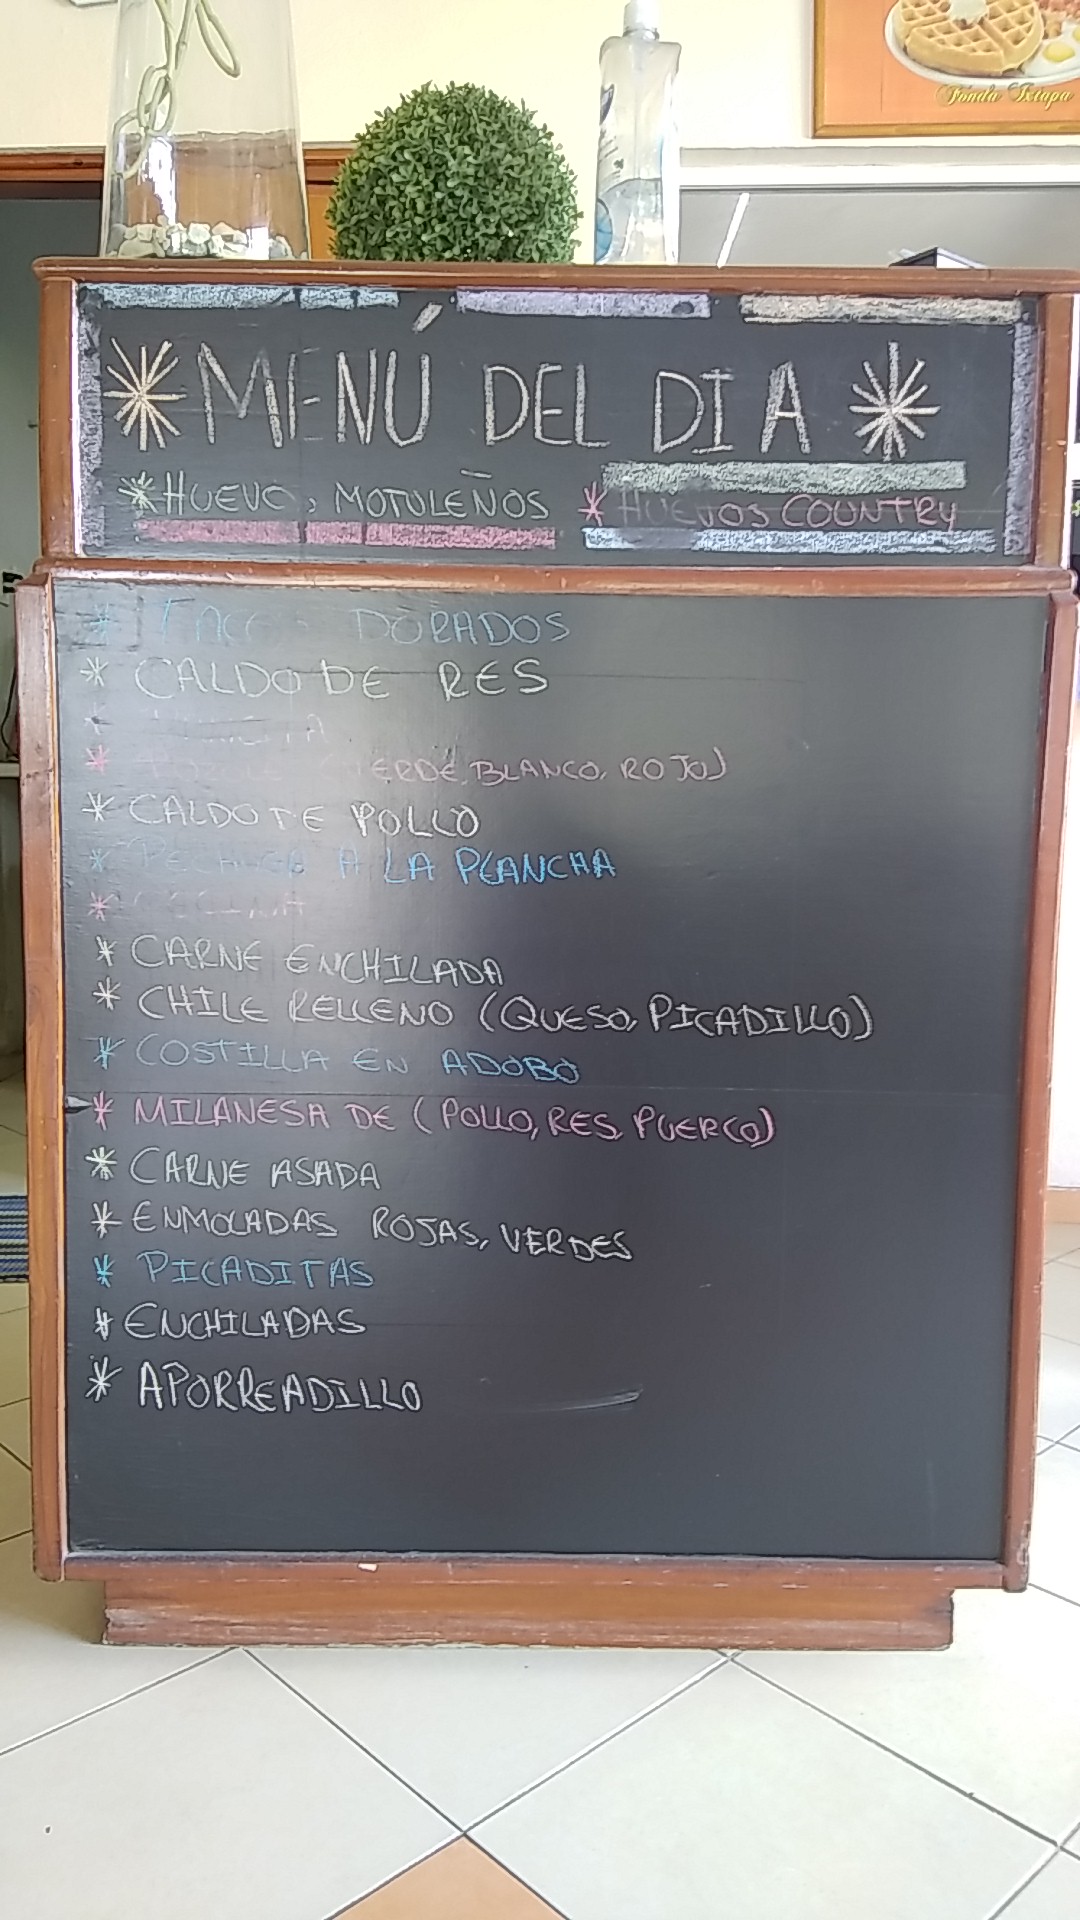 Fonda Ixtapa
* MENÚ DEL DIA *
* HUEVOS MOTULEÑOS * HUEVOS COUNTRY
* TACOS DORADOS
* CALDO DE RES
*
* (VERDE, BLANCO, ROJO)
* CALDO DE POLLO
* PECHUGA A LA PLANCHA
* CECINA
* CARNE ENCHILADA
* CHILE RELLENO (QUESO, PICADILLO)
* COSTILLA EN ADOBO
* MILANESA DE (POLLO, RES, PUERCO)
* CARNE ASADA
* ENMOLADAS ROJAS, VERDES
* PICADITAS
* ENCHILADAS
* APORREADILLO